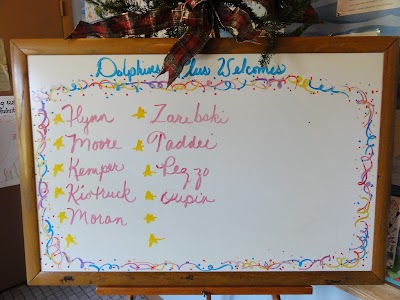 Dolphins Plus Welcomes
Flynn
Moore
Kemper
Kivtruck
Moran
Zarebski
Taddei
Pezzo
Cupin